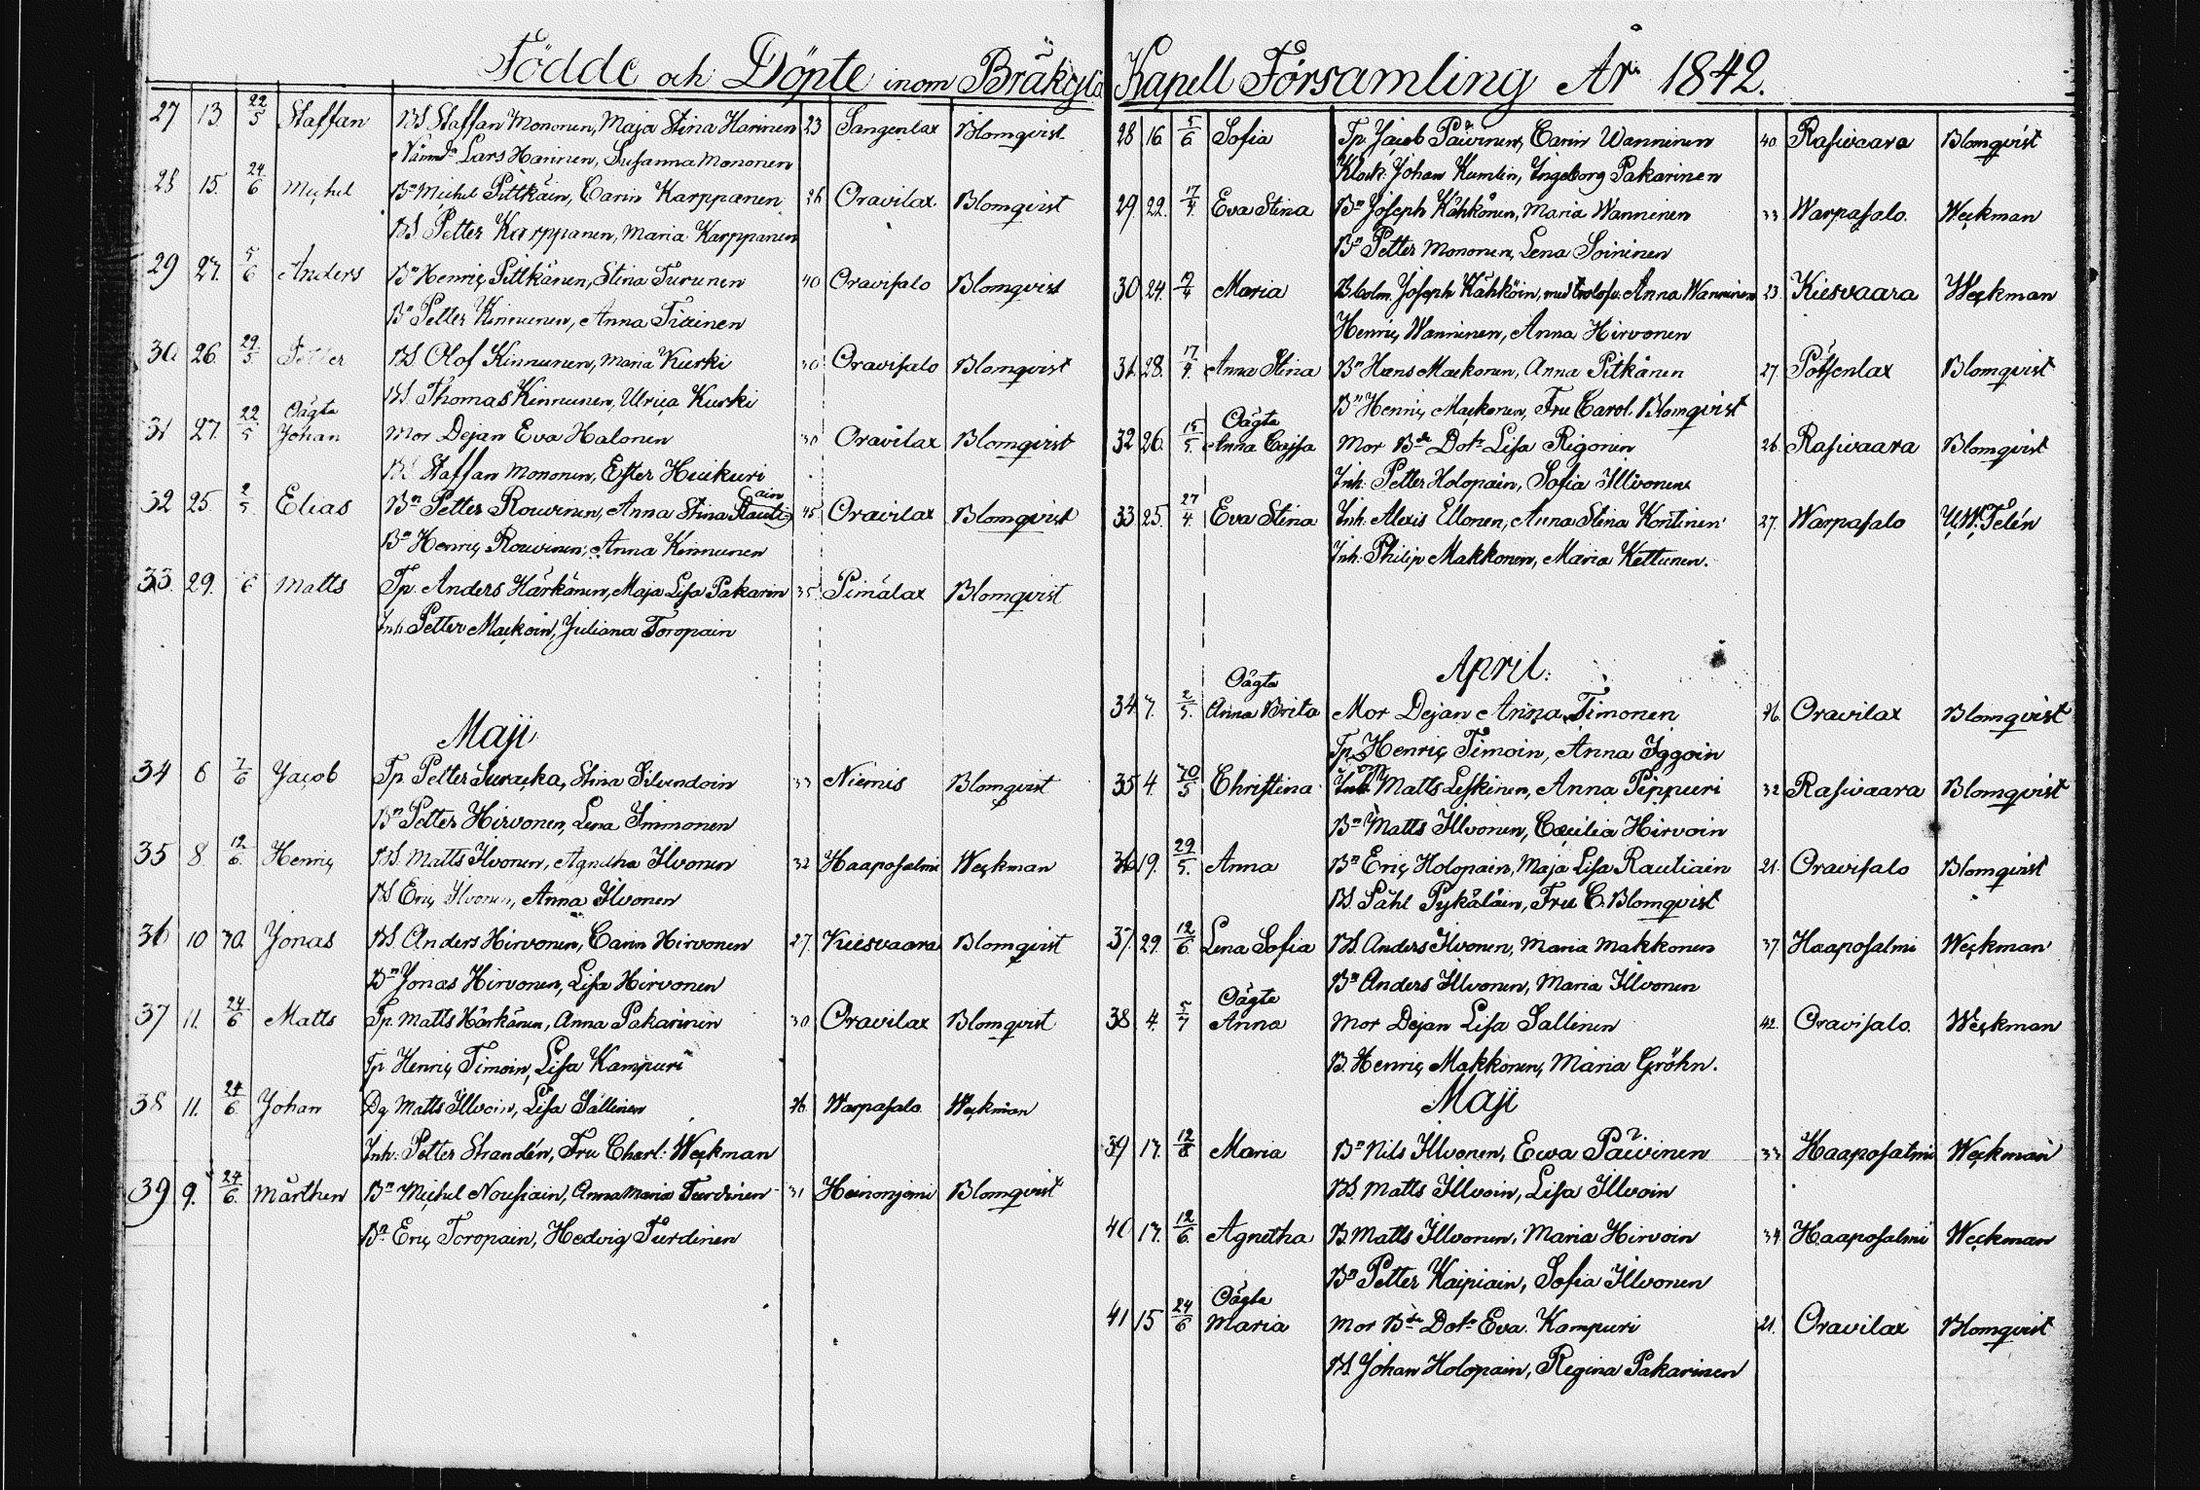 Födde och Döpte inom Bräkylä Kapell Församling År 1842.
27 13. 22/5 Staffan BS Staffan Mononen, Maja Stina Harinen 23 Sangenlax Blomqvist
Lars Harinen, Susanna Mononen
28 15. 24/6 Michel Bn Michel Pittkäin, Carin Karppanen 26 Oravilax Blomqvist
BS Petter Karppanen, Maria Karppanen
29 27. 5/6 Anders Bn Henric Pittkänen, Stina Turunen 40 Oravisalo Blomqvist
Bn Petter Kinnunen, Anna Tiainen
30 26. 29/5 Petter BS. Olof Kinnunen, Maria Kurki 30 Oravisalo Blomqvist
BS. Thomas Kinnunen, Ulrica Kurki
Oägta
31 27. 22/5 Johan Mor Dejan Eva Halonen 30 Oravilax Blomqvist
BS Staffan Mononen, Ester Huikuri
32 25. 2/5 Elias Bn Petter Rouvinen, Anna Stina Rautiain 45 Oravilax Blomqvist
Bn Henric Rouvinen, Anna Kinnunen
33. 29. 6 Matts Tp. Anders Härkänen, Maja Lisa Pakarin 35. Pimälax Blomqvist
Inh. Petter Mackoin, Juliana Toropain
Maji
34 6 7/6 Jacob Tp. Petter Suracka, Stina Silvendoin 33 Niemis Blomqvist
Bn Petter Hirvonen, Lena Immonen
35 8. 12/6. Henric BS. Matts Ilvonen, Agnetha Ilvonen 32 Haaposalmi Weckman
BS Eric Ilvonen, Anna Ilvonen
36 10 30. Jonas BS Anders Hirvonen, Carin Hirvonen 27. Kiesvaara Blomqvist
Bn Jonas Hirvonen, Lisa Hirvonen
37 11. 24/6 Matts Tp. Matts Härkänen, Anna Pakarinin 30. Oravilax Blomqvist
Tp Henric Timoin, Lisa Kampuri
38 11. 24/6. Johan Dg Matts Illvoin, Lisa Sallinen 26. Warpasalo. Weckman
Inh: Petter Strandén, Fru Charl: Weckman
39 9. 24/6. Mårthen Bn Michel Nousiain, Anna Maria Turdinen 31 Heinonjemi Blomqvist
Bn Eric Toropain, Hedvig Turdinen
28 16. 5/6 Sofia Tp. Jacob Päivinen, Carin Wanninen 40. Rasivaara Blomqvist
Klock. Johan Kumlin, Ingeborg Pakarinen
29 22. 17/4. Eva Stina Bn Joseph Kähkönen, Maria Wanninen 33 Warpasalo. Weckman
Bn Petter Mononen, Lena Soininen
30 24. Maria Joseph Kähköin, Anna Wanninen 23. Kiesvaara Weckman
Henric Wanninen, Anna Hirvonen
31. 28. 17/4. Anna Stina Bn Hans Mackonen, Anna Pitkänen 27. Potsenlax Blomqvist
Bn Henric Mackonen, Fru Carol. Blomqvist
Oägta
32 26. 15/5. Anna Cajsa Mor Bde Dotr Lisa Rigonin 26. Rasivaara Blomqvist
Inh. Petter Holopain, Sofia Illvonen
33 25. 27/4 Eva Stina Inh. Alexis Ellonen, Anna Stina Kontinen 27. Warpasalo Telén
Inh. Philip Makkonen, Maria Kettunen.
April.
Oägta
34 7. 2/5. Anna Brita Mor Dejan Anna Timonen 26. Oravilax Blomqvist
Tp. Henric Timoin, Anna Iggoin
35 4. 30/5 Christina Matts Leskinen, Anna Pippuri 32 Rasivaara Blomqvist
Bn Matts Illvonen, Cæcilia Hirvoin
36 19. 29/5. Anna Bn Eric Holopain, Maja Lisa Rautiain 21. Oravisalo Blomqvist
BS. Påhl Pykäläin, Fru C. Blomqvist
37. 29. 12/6. Lena Sofia BS. Anders Ilvonen, Maria Makkonen 37 Haaposalmi Weckman
Bn Anders Illvonen, Maria Illvonen
Oägta
38 4. 5/7 Anna Mor Dejan Lisa Sallinen 42. Oravisalo. Weckman
B. Henric Makkonen, Maria Gröhn.
Maji
39 17. 12/8 Maria Bn Nils Illvonen, Ewa Päivinen 33 Haaposalmi Weckman
BS. Matts Illvoin, Lisa Illvoin
40 17. 12/6. Agnetha B. Matts Illvonen, Maria Hirvoin 34. Haaposalmi Weckman
Bn Petter Kaipiain, Sofia Illvonen
Oägta
41 15 24/6 Maria Mor Bde Dotr Eva Kampuri 21. Oravilax Blomqvist
BS Johan Holopain, Regina Pakarinen